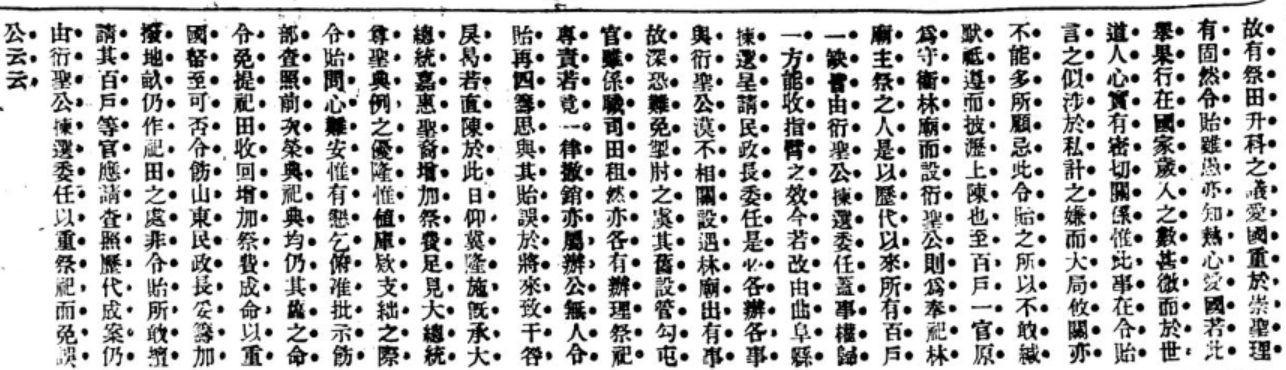 故有祭田升科之議愛國重於崇聖理
有固然令貽雖愚亦知熱心愛國若此
舉果行在國家歲入之數甚微而於世
道人心實有密切關係惟此事在令貽
言之似涉於私計之嫌而大局攸關亦
不能多所顧忌此令貽之所以不敢緘
默祗遵而披瀝上陳也至百戶一官原
爲守衛林廟而設衍聖公則爲奉祀林
廟主祭之人是以歷代以來所有百戶
一缺皆由衍聖公揀選委任蓋事權歸
一方能收指臂之效今若改由曲阜縣
揀選呈請民政長委任是必各辦各事
與衍聖公漠不相關設遇林廟出有事
故深恐難免掣肘之虞其舊設管勾屯
官雖係職司田租然亦各有辦理祭祀
專責若竟一律撤銷亦屬辦公無人令
貽再四籌思與其貽誤於將來致干咎
戾曷若直陳於此日仰冀隆施旣承大
總統嘉惠聖裔增加祭費足見大總統
尊聖典例之優隆惟值庫欵支絀之際
令貽問心難安惟有懇乞俯准批示飭
部查照前次榮典祀典均仍其舊之命
令免提祀田收回增加祭費成命以重
國帑至可否令飭山東民政長妥籌加
撥地畝仍作祀田之處非令貽所敢擅
請其百戶等官應請查照歷代成案仍
由衍聖公揀選委任以重祭祀而免誤
公云云